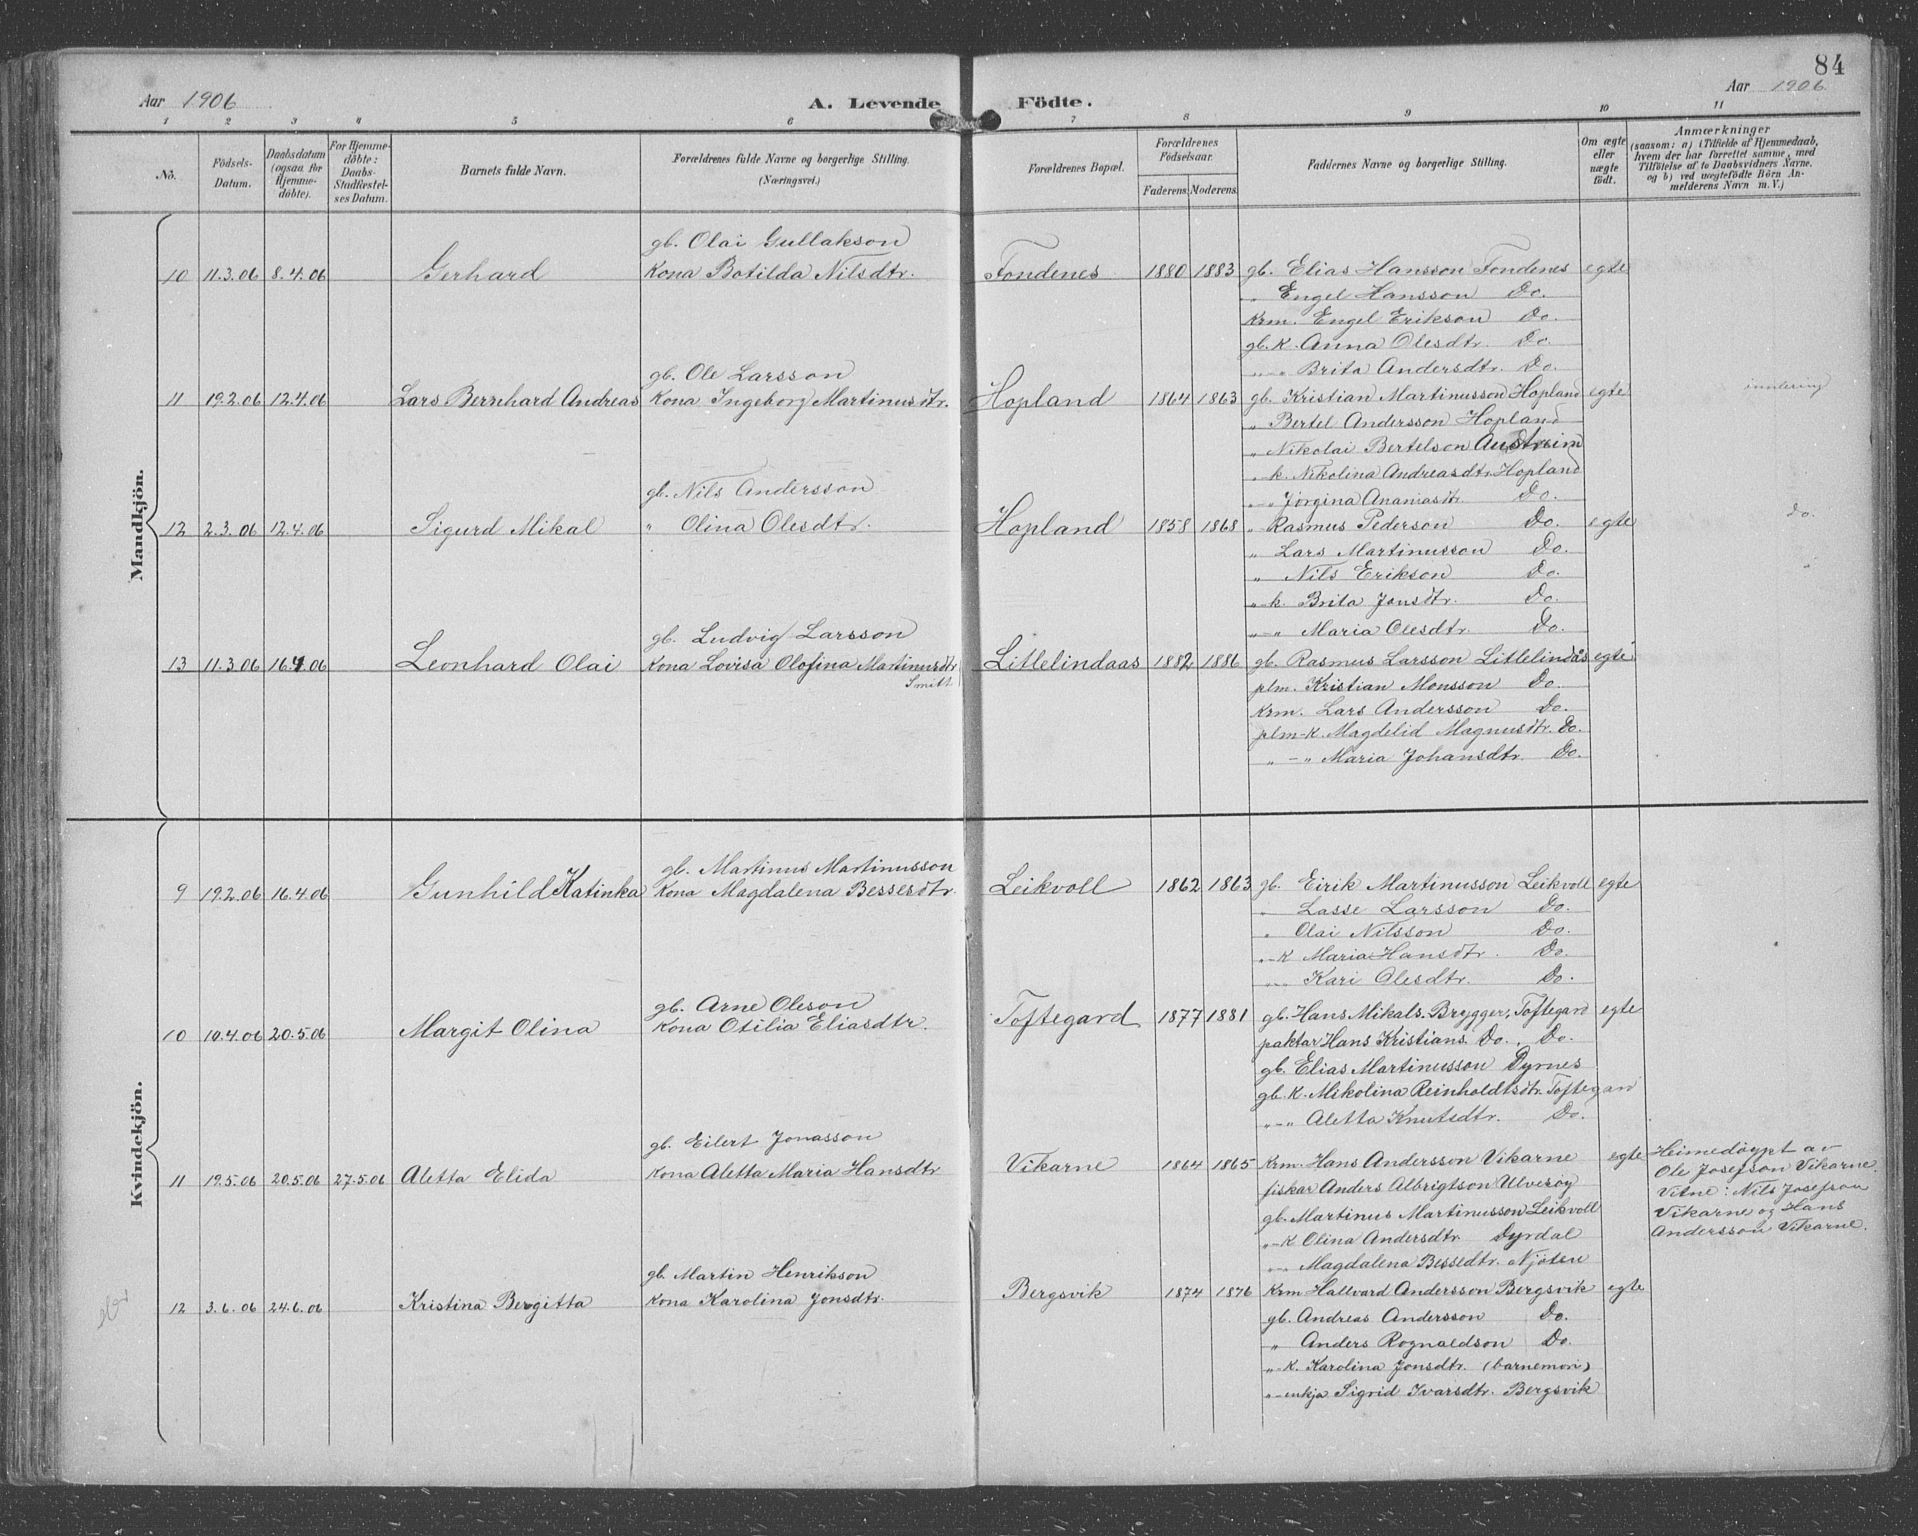 84
Aar 1906 A. Levende Födte. Aar 1906.
1 2 3 4 5 6 7 8 9 10 11
No.
Födsels-Datum.
Daabsdatum (ogsaa for Hjemme-döbte).
For Hjemme-döbte: Daabs-Stadfæstel-ses Datum.
Barnets fulde Navn.
Forældrenes fulde Navne og borgerlige Stilling.
(Næringsvei.)
Forældrenes Bopæl.
Forældrenes Födselsaar.
Faderens. Moderens.
Faddernes Navne og borgerlige Stilling.
Om ægte eller uægte födt.
Anmærkninger
(saasom: a) i Tilfælde af Hjemmedaab,
hvem der har forrettet samme, med
Tilföielse af to Daabsvidners Navne.
og b) ved uægtefödte Börn An-
melderens Navn m. V.)
Mandkjön.
gb. Olai Gullakson
10 11.3.06 8.4.06 Gerhard Kona Botilda Nilsdtr. Fondenes 1880 1883 gb. Elias Hansson Fondenes egte
" Engel Hansson Do.
Krm. Engel Erikson Do.
gb. K. Anna Olesdtr. Do.
"-" Brita Andersdtr. Do.
gb. Ole Larsson
11 19.2.06 12.4.06 Lars Bernhard Andreas Kona Ingeborg Martinusdtr. Hopland 1864 1863 gb. Kristian Martinusson Hopland egte
" Bertel Andersson Hopland
" Nikolai Bertelson Austreim
"-k. Nikolina Andreasdtr. Hopland
"-" Jörgina Ananiasdtr Do.
gb. Nils Andersson
12 2.3.06 12.4.06 Sigurd Mikal " Olina Olesdtr. Hopland 1858 1868 " Rasmus Pederson Do. egte do.
" Lars Martinusson Do.
" Nils Erikson Do.
"-k. Brita Jonsdtr. Do.
"-" Maria Olesdtr. Do.
gb. Ludvig Larsson
13 11.3.06 16.4.06 Leonhard Olai Kona Lovisa Olofina Martinusdtr Litlelindaas 1882 1886 gb. Rasmus Larsson Litlelindås egte
Smith
plm. Kristian Monsson Do.
Krm. Lars Andersson Do.
plm-K. Magdelid Magnusdtr. Do.
"-" Maria Johansdtr. Do.
Kvindekjön.
gb. Martinus Martinusson
9 19.2.06 16.4.06 Gunhild Katinka Kona Magdalena Bessesdtr. Leikvoll 1862 1863 gb. Eirik Martinusson Leikvoll egte
" Lasse Larsson Do.
" Olai Nilsson Do.
"-K Maria Hansdtr. Do.
"-" Kari Olesdtr. Do.
gb. Arne Oleson
10 10.4.06 20.5.06 Margit Olina Kona Otilia Eliasdtr. Toftegard 1877 1881 gb. Hans Mikals. Brygger, Toftegard egte
paktar Hans Kristians. Do., Do.
gb. Elias Martinusson Dyrnes
gb. K. Mikolina Reinholdtsdtr. Toftegard
"-" Aletta Knutsdtr. Do.
gb. Eilert Jonasson
11 19.5.06 20.5.06 27.5.06 Aletta Elida Kona Aletta Maria Hansdtr Vikarne 1864 1865 Krm. Hans Andersson Vikarne egte
Heimedöypt av
Ole Josefson Vikarne.
Vitne: Nils Josefson
Vikarne og Hans
Andersson Vikarne.
fiskar Anders Albrigtson Ulveröy
gb. Martinus Martinusson Leikvoll
"-K Olina Andersdtr Dyrdal
"-" Magdalena Bessedtr. Njöten
gb. Martin Henrikson
12 3.6.06 24.6.06 Kristina Bergitta Kona Karolina Jonsdtr. Bergsvik 1874 1876 Krm Hallvard Andersson Bergsvik egte
gb. Andreas Andersson Do.
" Anders Rognaldson Do.
"-K. Karolina Jonsdtr. (barnemori)
"-enkja Sigrid Ivarsdtr. Bergsvik